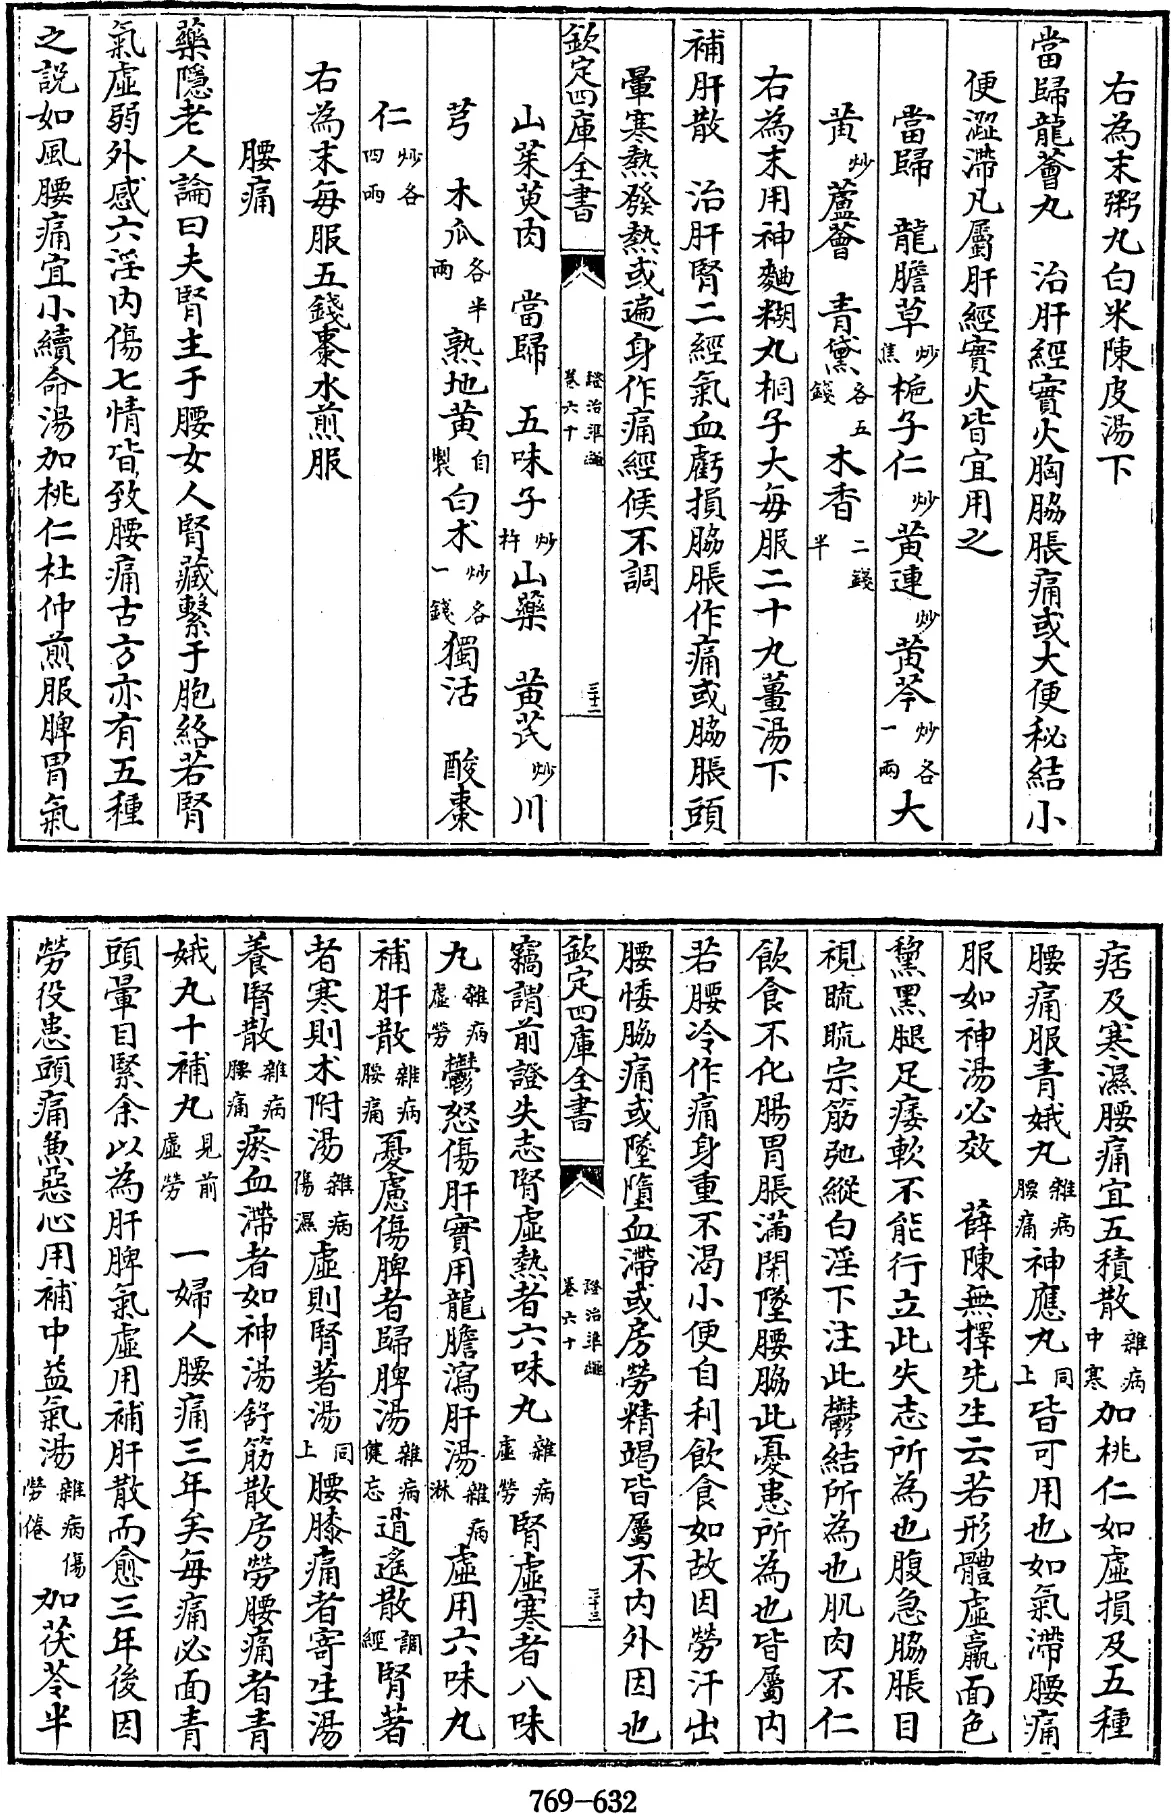 右為末粥丸白米陳皮湯下
當歸龍薈丸　治肝經實火胸脇脹痛或大便秘結小
便澀滯凡屬肝經實火皆宜用之
當歸　龍膽草炒焦梔子仁炒黃連炒黃芩炒各一兩大
黃炒蘆薈　青黛各五錢木香二錢半
右為末用神麯糊丸桐子大每服二十丸薑湯下
補肝散　治肝腎二經氣血虧損脇脹作痛或脇脹頭
暈寒熱發熱或遍身作痛經候不調
欽定四庫全書　證治準繩卷六十　三十二
山茱萸肉　當歸　五味子炒杵山藥　黃芪炒川
芎　木瓜各半兩熟地黃自製白朮炒各一錢獨活　酸棗
仁炒各四兩
右為末每服五錢棗水煎服
腰痛
藥隱老人論曰夫腎主于腰女人腎藏繫于胞絡若腎
氣虛弱外感六淫內傷七情皆致腰痛古方亦有五種
之說如風腰痛宜小續命湯加桃仁杜仲煎服脾胃氣
痞及寒濕腰痛宜五積散雜病中寒加桃仁如虛損及五種
腰痛服青娥丸雜病腰痛神應丸同上皆可用也如氣滯腰痛
服如神湯必效　薛陳無擇先生云若形體虛羸面色
黧黑腿足痿軟不能行立此失志所為也腹急脇脹目
視䀮䀮宗筋弛縱白淫下注此鬱結所為也肌肉不仁
飲食不化腸胃脹滿閑墜腰脇此憂患所為也皆屬內
若腰冷作痛身重不渴小便自利飲食如故因勞汗出
腰痿脇痛或墜墮血滯或房勞精竭皆屬不內外因也
欽定四庫全書　證治準繩卷六十　三十三
竊謂前證失志腎虛熱者六味丸雜病虛勞腎虛寒者八味
丸雜病虛勞鬱怒傷肝實用龍膽瀉肝湯雜病淋虛用六味丸
補肝散雜病腰痛憂慮傷脾者歸脾湯雜病健忘逍遙散調經腎著
者寒則朮附湯雜病傷濕虛則腎著湯同上腰膝痛者寄生湯
養腎散雜病腰痛瘀血滯者如神湯舒筋散房勞腰痛者青
娥丸十補丸見前虛勞　一婦人腰痛三年矣每痛必面青
頭暈目緊余以為肝脾氣虛用補肝散而愈三年後因
勞役患頭痛兼惡心用補中益氣湯雜病傷勞倦加茯苓半
769—632